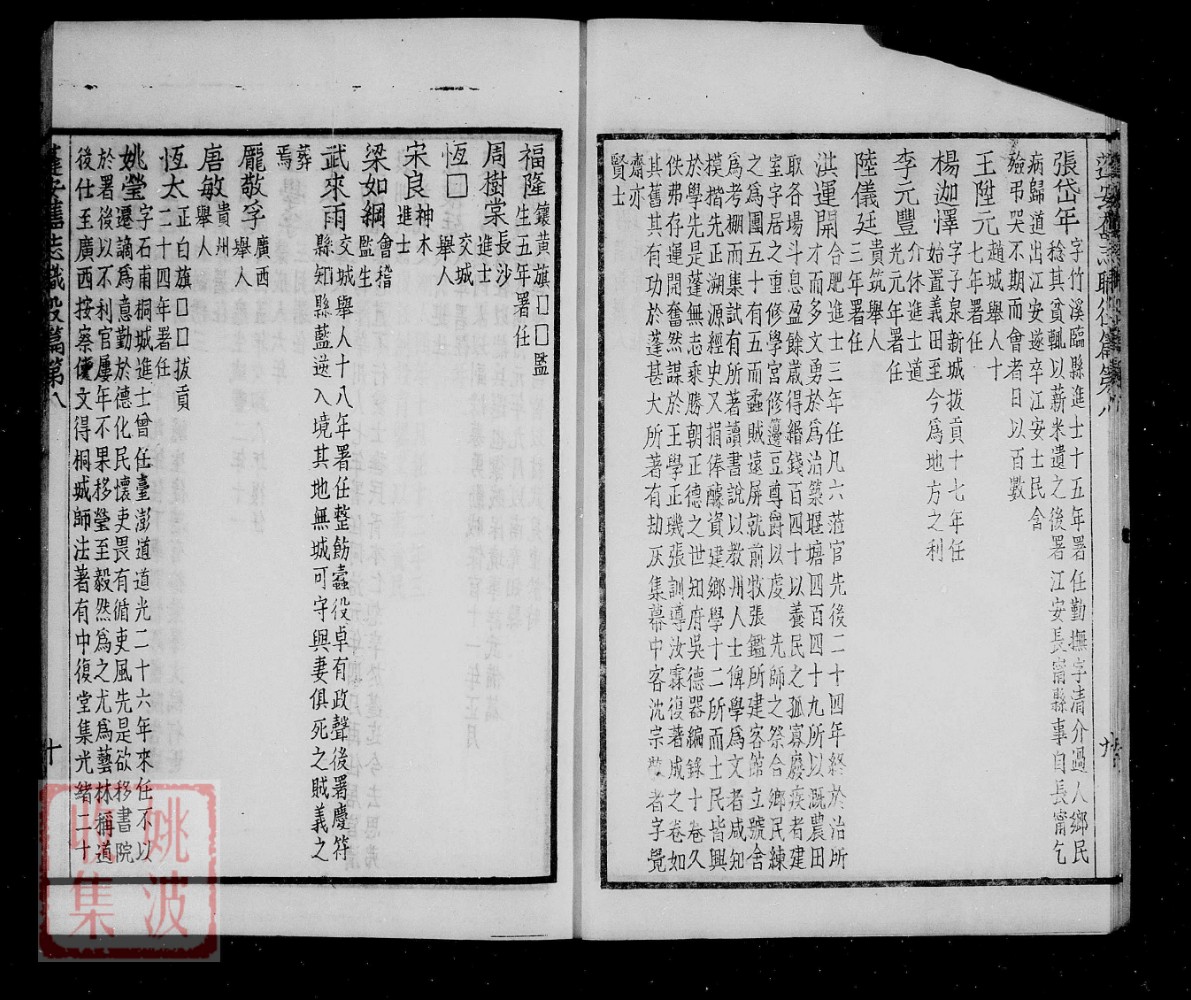 張岱年字竹溪臨縣進士十五年署任勤撫字清介過人鄉民
稔其貧輒以薪米遺之後署江安長甯縣事自長甯乞
病歸道出江安遂卒江安士民會
殮弔哭不期而會者日以百數
王陞元趙城舉人十
七年署任
楊迦懌字子泉新城拔貢十七年任
始置義田至今爲地方之利
李元豐介休進士道
光元年署任
陸儀廷貴筑舉人
三年署任
洪運開合肥進士三年任凡六蒞官先後二十四年終於治所
才而多文勇於爲治築堰塘四百四十九所以溉農田
取各場斗息盈餘歲得緡錢百四十以養民之孤寡廢疾者建
室字居之重修學宮修籩豆尊爵以虔先師之祭合鄉民練
之爲團五十有五而蟊賊遠屏就前牧張鑑所建客館立號舍
爲考棚而集試有所著讀書說以教州人士俾學爲文者咸知
模楷先正溯源經史又捐俸醵資建鄉學十二所而士民皆興
於學先是蓬無志乘勝朝正德之世知府吳德器編錄十卷久
佚弗存運開奮然謀於王學正璣張訓導汝霖復著成之卷如
其舊有功於蓬甚大所著有劫灰集幕中客沈宗敬者字覺
齋亦
賢士
福隆鑲黃旗□□監
生五年署任
周樹棠長沙
進士
恆□交城
舉人
宋良神木
進士
梁如綱會稽
監生
武來雨交城舉人十八年署任整飭蠹役卓有政聲後署慶符
縣知縣藍逆入境其地無城可守與妻俱死之賊義之
葬
焉
龐敬孚廣西
舉人
唐敏貴州
舉人
恆太正白旗□□拔貢
二十四年署任
姚瑩字石甫桐城進士曾任臺澎道道光二十六年來任不以
遷謫爲意勤於德化民懷吏畏有循吏風先是欲移書院
於署後以不利官屢年不果移瑩至毅然爲之尤爲藝林稱道
後仕至廣西按察使文得桐城師法著有中復堂集光緒二十
蓬安舊志職役篇第八
十
姚波
收集